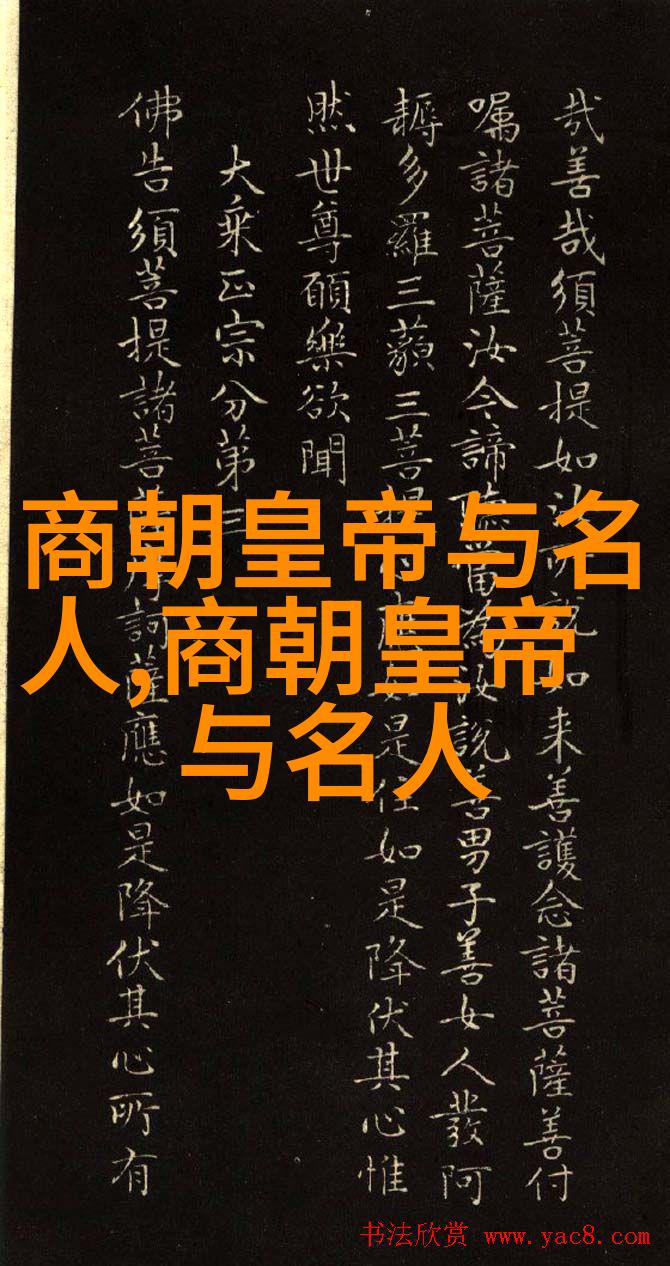 哉善哉須菩提如汝所說如来善護念諸菩薩善付
囑諸菩薩汝今諦聽當為汝說善男子善女人發阿
耨多羅三藐三菩提心應如是住如是降伏其心惟
然世尊願樂欲聞
大乘正宗分第三
佛告須菩提諸菩薩摩訶薩應如是降伏其心所有
商朝皇帝与名
人,商朝皇帝
与名人
书法欣赏 www.yac8.com